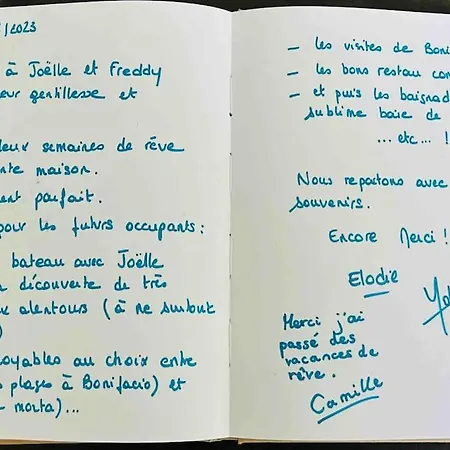 /2023
à Joëlle et Freddy
eur gentillesse et
eux semaines de rêve
nte maison.
ent parfait.
pour les futurs occupants :
bateau avec Joëlle
découverte de très
x alentours (à ne surtout
)
oyables au choix entre
s plages à Bonifacio) et
morta)...
– les visites de Boni
– les bons restau con
– et puis les baignad
sublime baie de
... etc... !
Nous repartons avec
souvenirs.
Encore Merci !
Elodie
Merci j'ai
passé des
vacances de
rêve.
Camille